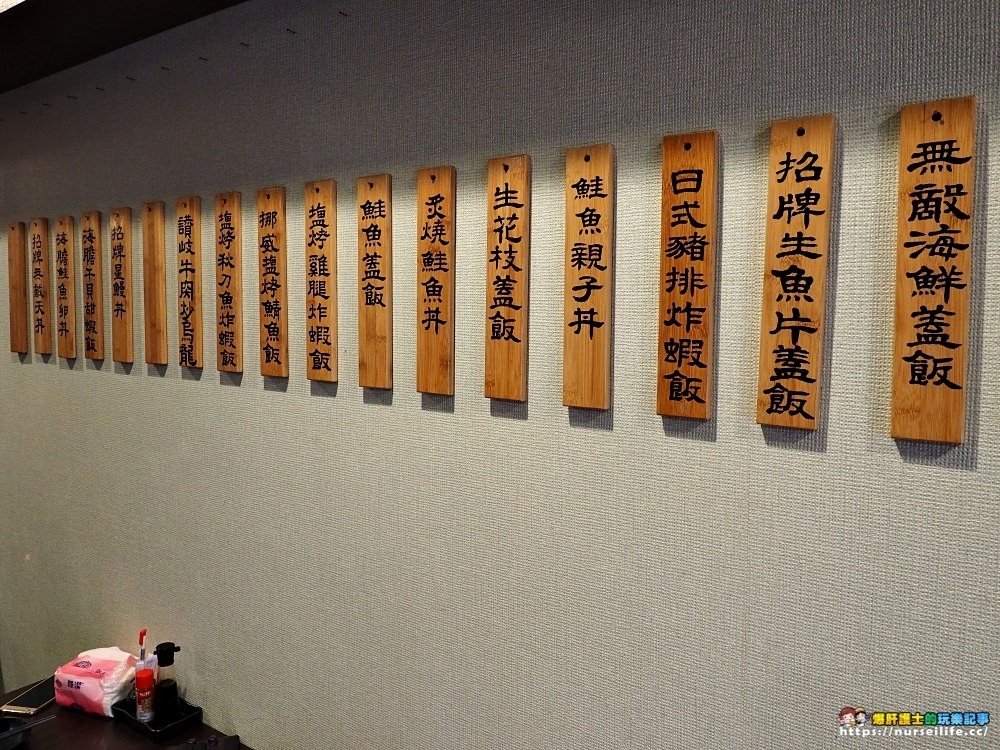 無敵海鮮蓋飯
招牌生魚片蓋飯
日式豬排炸蝦飯
鮭魚親子丼
生花枝蓋飯
炙燒鮭魚丼
鮭魚蓋飯
塩烤雞腿炸蝦飯
挪威塩烤鯖魚飯
塩烤秋刀魚炸蝦飯
讚岐牛肉炒烏龍
招牌星鰻丼
海膽干貝甜蝦丼
海膽鮭魚卵丼
招牌無敵天丼
爆肝護士的玩樂記事
https://nurseilife.cc/